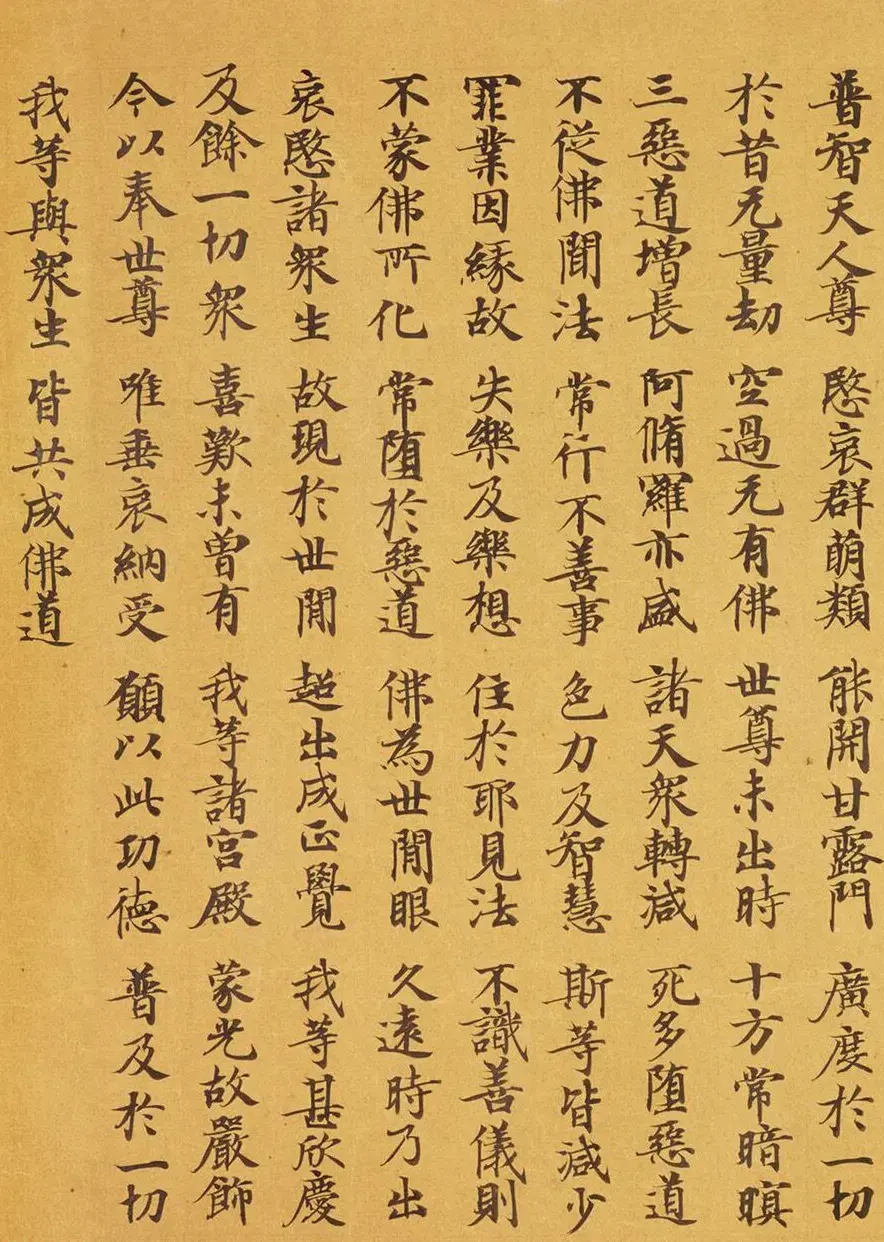 普智天人尊 愍哀群萌類 能開甘露門 廣度於一切
於昔无量劫 空過无有佛 世尊未出時 十方常暗暝
三惡道增長 阿脩羅亦盛 諸天衆轉減 死多墮惡道
不從佛聞法 常行不善事 色力及智慧 斯等皆減少
罪業因緣故 失樂及樂想 住於耶見法 不識善儀則
不蒙佛所化 常墮於惡道 佛為世間眼 久遠時乃出
哀愍諸衆生 故現於世間 超出成正覺 我等甚欣慶
及餘一切衆 喜歎未曾有 我等諸宮殿 蒙光故嚴飾
今以奉世尊 唯垂哀納受 願以此功德 普及於一切
我等與衆生 皆共成佛道